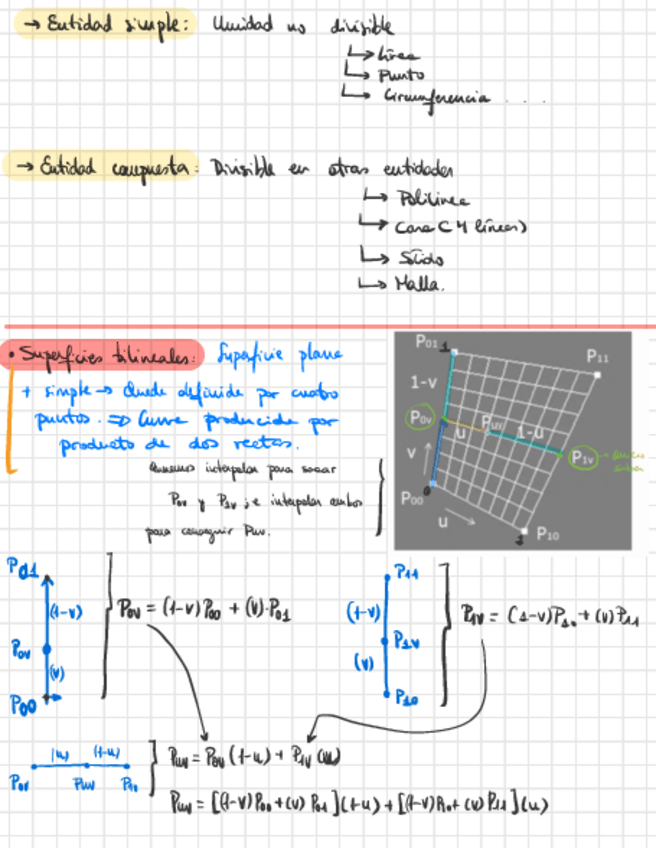 → Entidad simple: Unidad no divisible
↳ Línea
↳ Punto
↳ Circunferencia ....
→ Entidad compuesta: Divisible en otras entidades
↳ Polilínea
↳ Cara (4 líneas)
↳ Sólido
↳ Malla.
• Superficies bilineales: Superficie plana
+ simple → Queda definida por cuatro
puntos. ⇒ Curva producida por
producto de dos rectas.
Queremos interpolar para sacar
P0v y P1v ; e interpolar ambos
para conseguir Puv.
P01 1
P11
1-v
P0v
u
Puv
1-u
P1v
v
P00 0
u
1 P10
P01
(1-v)
P0v
(v)
P00
P0v = (1-v)P00 + (v)·P01
P11
(1-v)
P1v
(v)
P10
P1v = (1-v)P10 + (v)P11
(u) (1-u)
P0v Puv
Puv = P0v (1-u) + P1v (u)
Puv = [(1-v)P00+(v) P01](1-u) + [(1-v)P10+(v) P11](u)